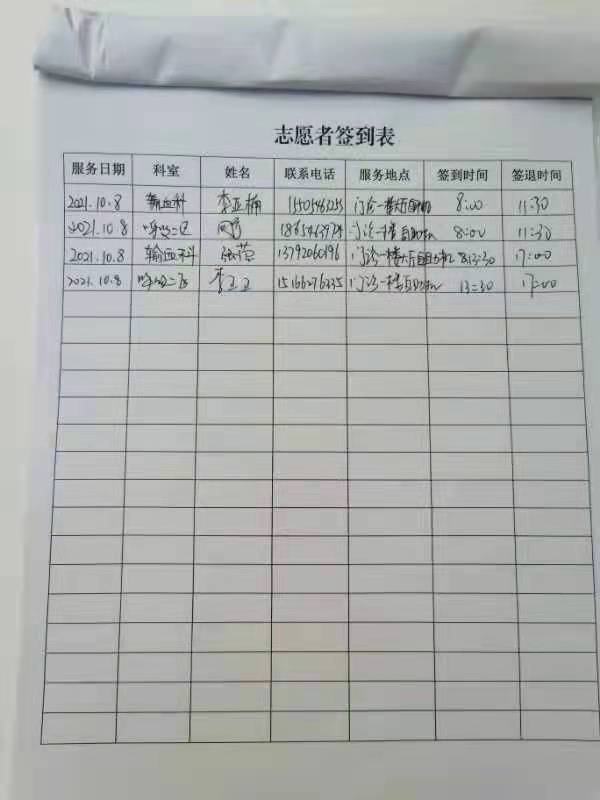 志愿者签到表
服务日期 科室 姓名 联系电话 服务地点 签到时间 签退时间
2021.10.8 输血科 李亚楠 门诊一楼 8:00 11:30
2021.10.8 呼吸二区 门诊一楼自助机 8:00 11:30
2021.10.8 输血科 张萍 13792060196 门诊一楼大厅自助机 13:30 17:00
2021.10.8 呼吸二区 15166276335 门诊一楼自助机 13:30 17:00